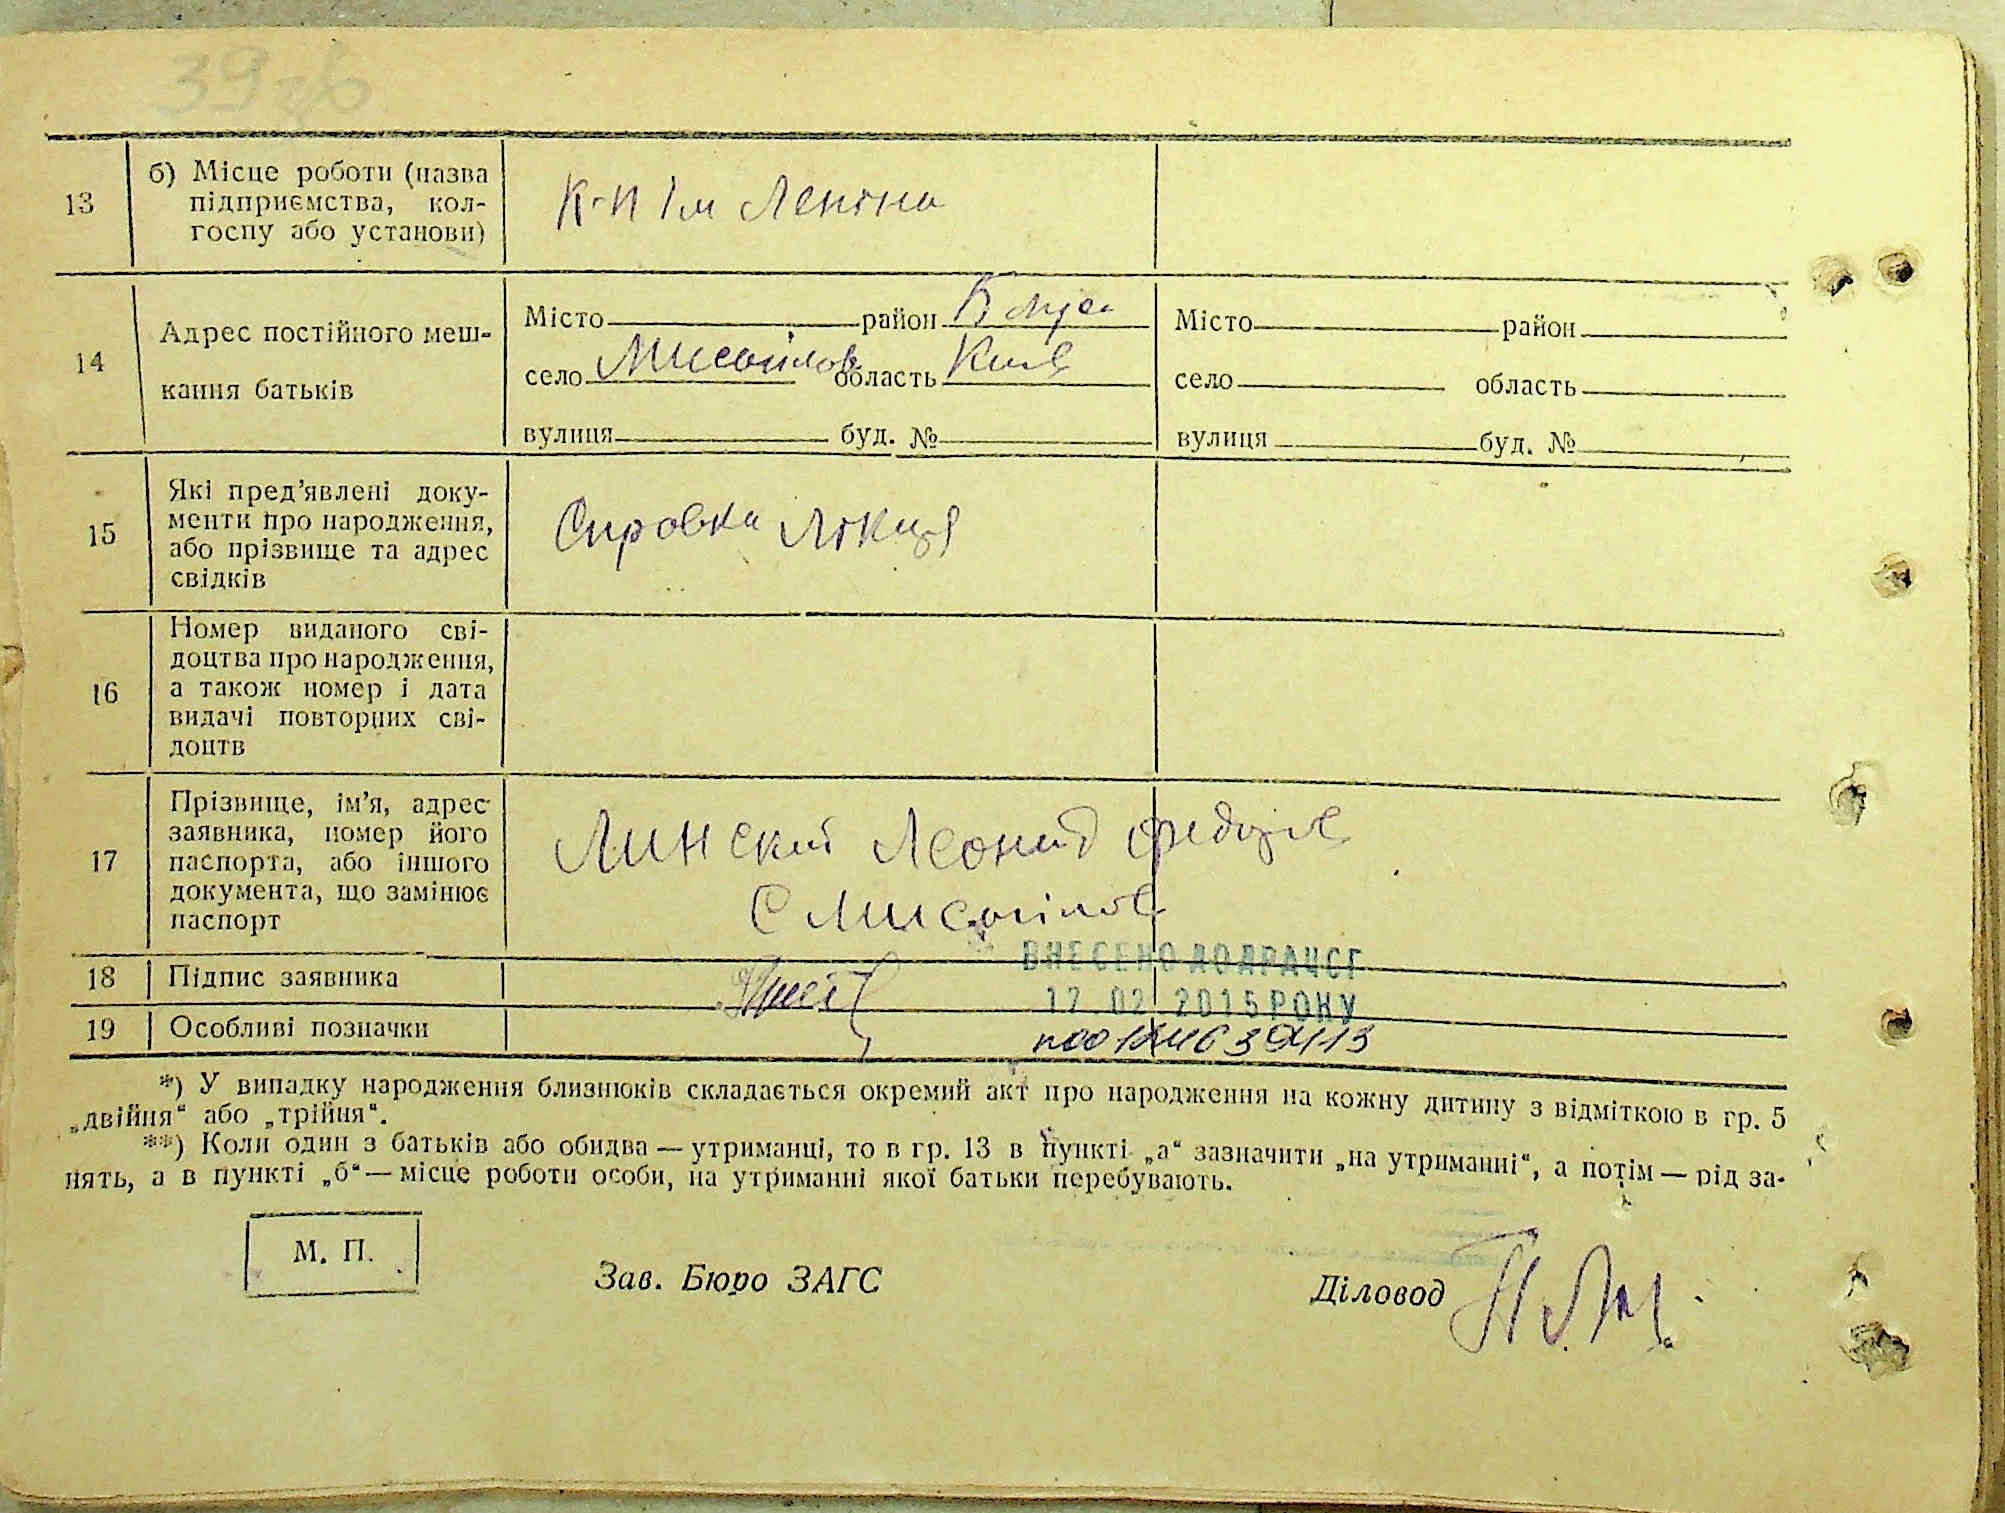 39зв
13
б) Місце роботи (назва
підприємства, кол-
госпу або установи)
К-п Ім Леніна
14
Адрес постійного меш-
кання батьків
Місто район
село Мисайлов область Київ
вулиця буд. №
Місто район
село область
вулиця буд. №
15
Які пред’явлені доку-
менти про народження,
або прізвище та адрес
свідків
Справка Лікаря
16
Номер виданого сві-
доцтва про народження,
а також номер і дата
видачі повторних сві-
доцтв
17
Прізвище, ім’я, адрес
заявника, номер його
паспорта, або іншого
документа, що замінює
паспорт
Линский Леонид Федоров
С Мисайлов
18 Підпис заявника
ВНЕСЕНО ДО ДРАЦСГ
17.02.2015 РОКУ
19 Особливі позначки
*) У випадку народження близнюків складається окремий акт про народження на кожну дитину з відміткою в гр. 5
„двійня“ або „трійня“.
**) Коли один з батьків або обидва — утриманці, то в гр. 13 в пункті „а“ зазначити „на утриманні“, а потім — рід за-
нять, а в пункті „б“ — місце роботи особи, на утриманні якої батьки перебувають.
М. П.
Зав. Бюро ЗАГС
Діловод